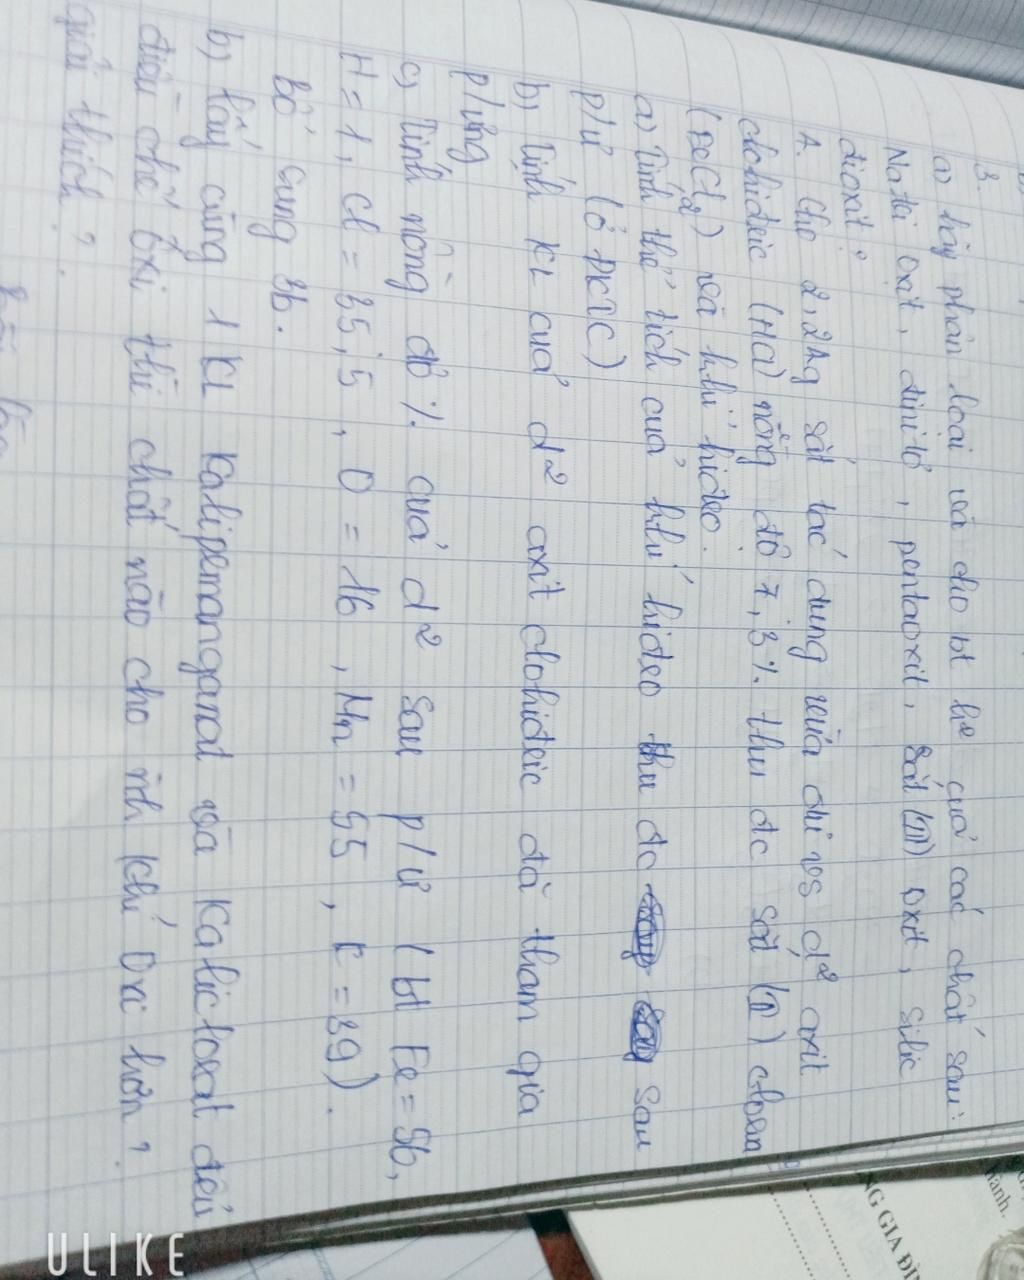 3.
a) hãy phân loại và cho bt hẹ của các chất sau:
Natri oxit, đinitơ, pentaoxit, sắt (III) oxit, silic
đioxit?
A. Cho 2,24g sắt tác dụng vừa đủ vs d² axit
clohiđric (HCl) nồng độ 7,3% thu đc sắt (II) clorua
(FeCl2) và khí hiđro.
a) Tính thể tích của khí hiđro thu đc sau
p/ư (ở ĐKTC)
b) Tính KL của d² axit clohiđric đã tham gia
p/ưng
c) Tính nồng độ % của d² sau p/ư (bt Fe = 56,
H = 1, Cl = 35,5, O = 16, Mn = 55, K = 39).
Bổ sung 3b.
b) lấy cùng 1 KL Kalipemanganat và Kaliclorat để
điều chế Oxi thì chất nào cho nh khí Oxi hơn?
giải thích?
NG GIA ĐÌ
hành.
ULIKE